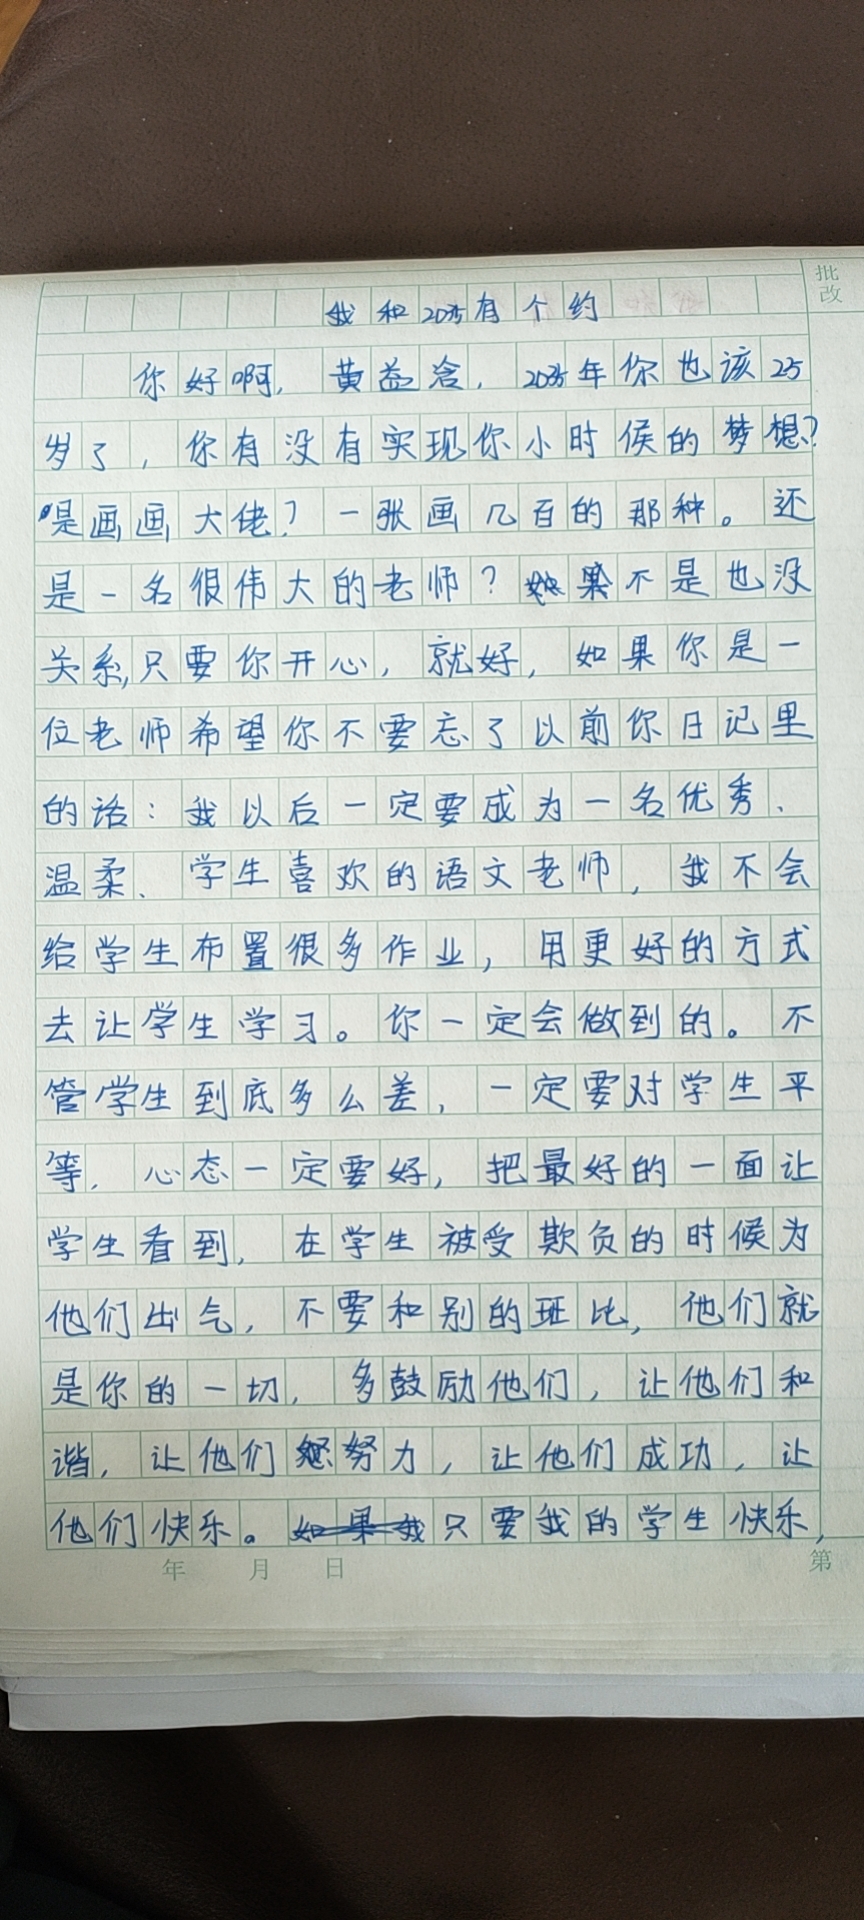 批改
我和2035有个约
你好啊,黄益洽,2035年你也该25
岁了,你有没有实现你小时侯的梦想?
是画画大佬?一张画几百的那种。还
是一名很伟大的老师?如果不是也没
关系,只要你开心,就好,如果你是一
位老师希望你不要忘了以前你日记里
的话:我以后一定要成为一名优秀、
温柔、学生喜欢的语文老师,我不会
给学生布置很多作业,用更好的方式
去让学生学习。你一定会做到的。不
管学生到底多么差,一定要对学生平
等,心态一定要好,把最好的一面让
学生看到,在学生被受欺负的时候为
他们出气,不要和别的班比,他们就
是你的一切,多鼓励他们,让他们和
谐,让他们努力,让他们成功,让
他们快乐。如果我只要我的学生快乐,
年 月 日 第